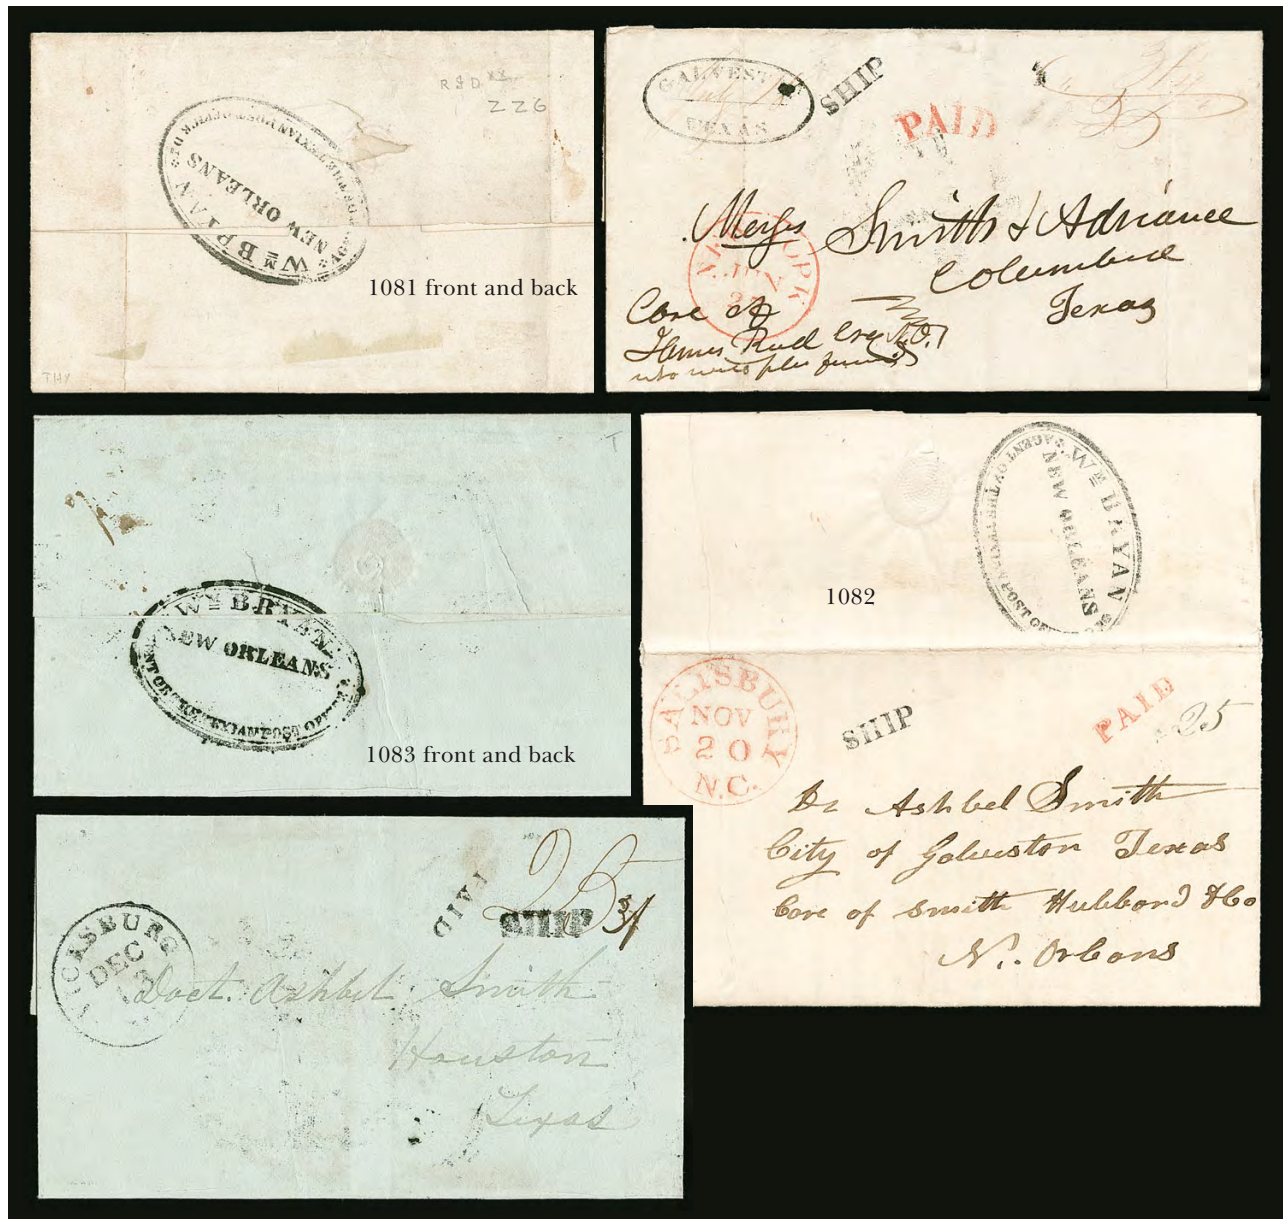 R&D XX
226
Wᴹ BRYAN
NEW ORLEANS
AGENT OF THE TEXIAN POST OFFICE
1081 front and back
THY
GALVESTON
TEXAS
SHIP
PAID
NEW YORK
JUL
Messrs Smith & Adriance
Columbia
Texas
Care of
James Reed N.O.
Wᴹ BRYAN
NEW ORLEANS
AGENT OF THE TEXIAN POST OFFICE
1083 front and back
Wᴹ BRYAN
NEW ORLEANS
AGENT OF THE TEXIAN POST OFFICE
1082
SALISBURY
NOV
20
N.C.
SHIP
PAID
25
Dr Ashbel Smith
City of Galveston Texas
Care of Smith Hubbard & Co
N. Orleans
VICKSBURG
DEC
PAID
25
SHIP
Doct. Ashbel Smith
Houston
Texas